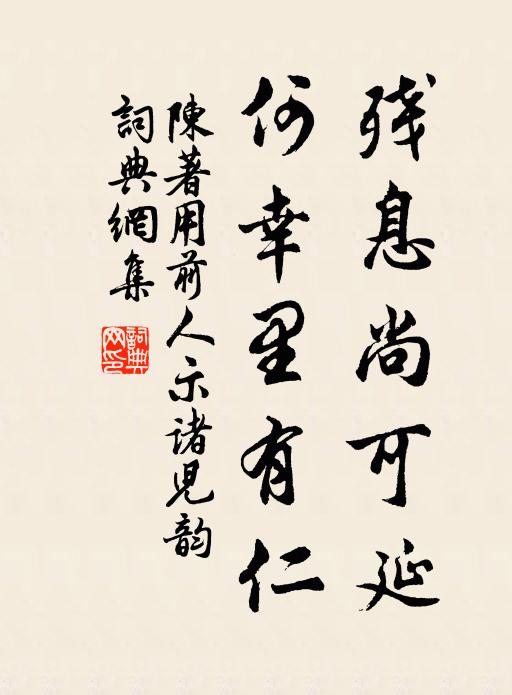 残息尚可延
何幸里有仁
陳著用前人示諸児韵
詞典網集
詞典网印